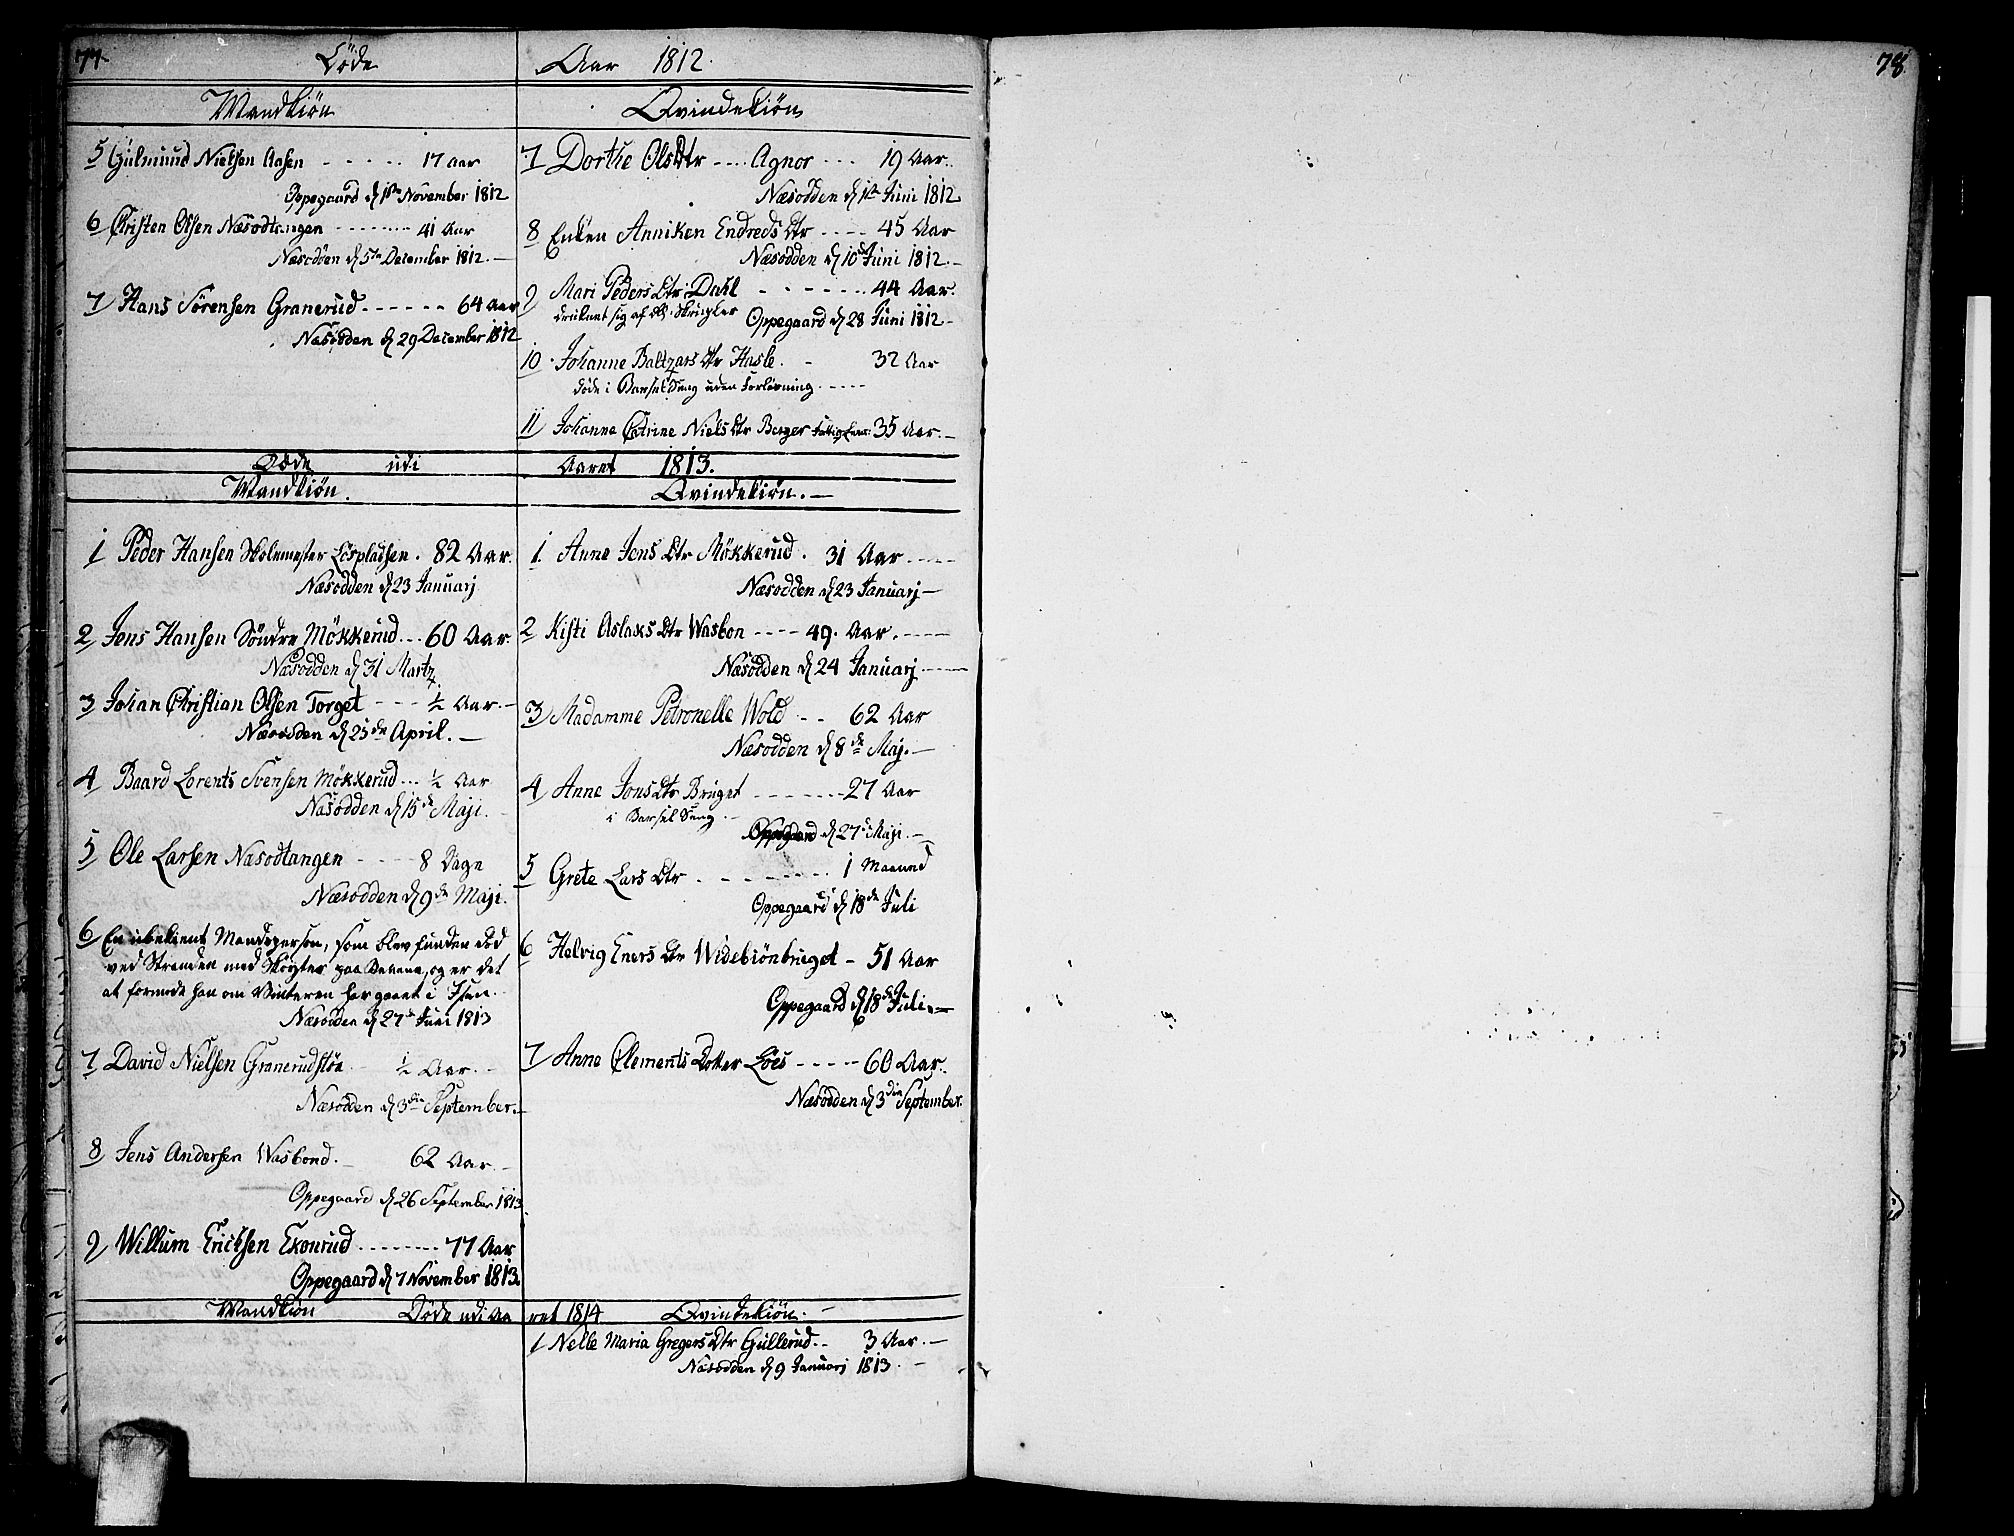 77.
Døde
Aar 1812.
Mandkiøn
Qvindekiøn
5 Gulmund Nielsen Aasen - - - - - 17 aar
Oppegaard d 1ste November 1812
6 Christen Olsen Næsodtangen - - - - - 41 Aar
Næsodden d 5te December 1812.
7 Hans Sørensen Granerud - - - - - 64 Aar
Næsodden d 29 December 1812
7 Dorthe Olsdtr - - - - Agnor - - - 19 Aar.
Næsodden d 1ste Juni 1812
8 Enken Anniken Endreds Dtr - - - - 45 Aar
Næsodden d 10de Juni 1812.
9 Mari Peders Dtr Dahl - - - - - 44 Aar.
sig af
Oppegaard d 28 Juni 1812
10 Johanne Baltzars Dtr Hasle. - 32 Aar
døde i Barselseng uden Forløsning - - - -
11 Johanne Catrine Niels Dtr Berger 35 Aar.
Døde udi
Aaret 1813.
Mandkiøn.
Qvindekiøn.
1 Peder Hansen Skolemester Løspladsen. 82 Aar.
Næsodden d 23 Januarj
2 Jens Hansen Søndre Mökkerud - - - 60 Aar.
Næsodden d 31 Martz.
3 Johan Christian Olsen Torget - - - ½ Aar.
Næsodden d 25de April.
4 Baard Lorents Svensen Mökkerud - - - ½ Aar
Næsodden d 15de Maji.
5 Ole Larsen Næsodtangen - - - - 8 Dage
Næsodden d 9de Maji.
6 En ubekient Mandsperson, som blev funden død
ved Stranden med Skøyter paa Benene, og er det
at formode han om Vinteren har gaaet i Isen.
Næsodden d 27de Juni 1813
7 David Nielsen Granerudstöe. - ½ Aar.
Næsodden d 3die September.
8 Jens Andersen Wasbond. 62 Aar.
Oppegaard d 26 September 1813
9 Willum Erichsen Ekornrud - - - - - 77 Aar
Oppegaard d 7 November 1813.
1. Anne Jens Dtr Mökkerud. 31 Aar - - - -
Næsodden d 23 Januarj
2 Kisti Aslaks Dtr Wasbon - - - - 49. Aar.
Næsodden d 24 Januarj
3 Madamme Petronelle Wold - - 62 Aar
Næsodden d 8de Maj.
4 Anne Jons Dtr Bruget - - - - - 27 Aar
i Barsel Seng
Oppegaard d 27de Maji.
5 Grete Lars Dtr - - - - - 1 Maaned
Oppegaard d 18de Juli
6 Helvig Eners Dtr Widebiönbruget - 51 Aar
Oppegaard d 18de Juli.
7 Anne Clements Dotter Löes - - - - 60 Aar.
Næsodden d 3die September.
Mandkiøn Døde udi Aa
ret 1814 Qvindekiøn.
1 Nelle Maria Gregers Dtr Gullerud. - 3 Aar.
Næsodden d 9 Januarj 1813.
78.